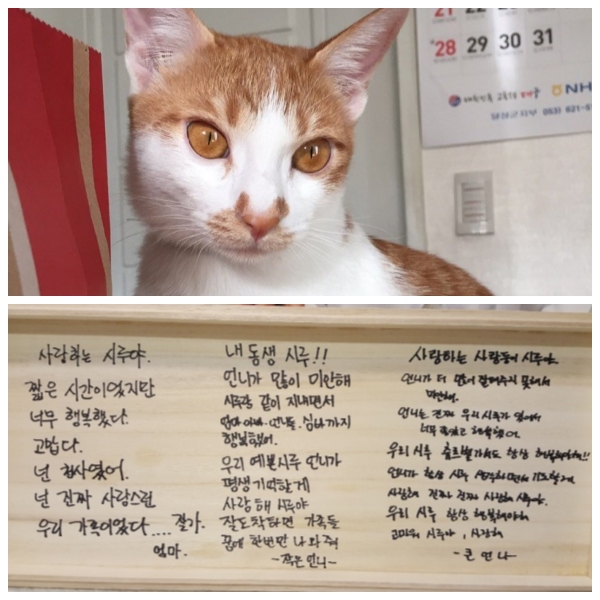 21 22
28 29 30 31
NH
(053)
사랑하는 시루야.
짧은 시간이었지만
너무 행복했다.
고맙다.
넌 천사였어.
넌 진짜 사랑스런
우리 가족이었다.... 잘가.
엄마.
내 동생 시루!!
언니가 많이 미안해
시루랑 같이 지내면서
엄마 아빠 언니들 심바까지
행복했었어.
우리 예쁜시루 언니가
평생 기억할게
사랑해 시루야
잘 도착하면 가족들
꿈에 한번만 나와줘
-작은 언니-
사랑하는 사랑둥이 시루야.
언니가 더 많이 잘해주지 못해서
미안해.
언니는 진짜 우리 시루가 있어서
너무 좋았고 행복했어.
우리 시루 출르별가서도 항상 행복해야해!!
언니가 항상 시루 생각하면서 기도할게.
사랑해 진짜 진짜 사랑해 시루야.
우리 시루 항상 행복해야해
고마워 시루야, 사랑해
-큰 언니-